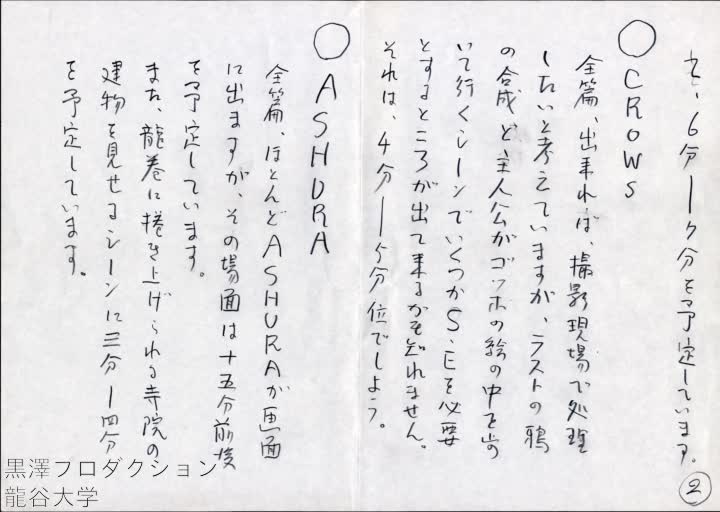 を、6分—7分を予定しています。
○CROWS
全篇、出来れば、撮影現場で処理
したいと考えていますが、ラストの鴉
の合成と、主人公がゴッホの絵の中を歩
いて行くシーンでいくつかS.Eを必要
とするところが出て来るかも知れません。
それは、4分—5分位でしょう。
○ASHURA
全篇、ほとんどASHURAが画面
に出ますが、その場面は十五分前後
を予定しています。
また、龍巻に捲き上げられる寺院の
建物を見せるシーンに三分—四分
を予定しています。
2
黒澤プロダクション
龍谷大学